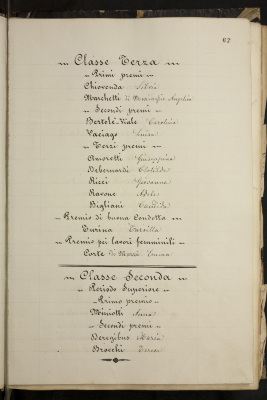 67
Classe Terza
Primi premi
Chiovenda Silvia
Marchetti di Angelica
Secondi premi
Bertolè-Viale Carolina
Vaciago Luisa
Terzi premi
Amoretti Giuseppina
Debernardi Clotilde
Ricci Giovanna
Ravone Adele
Bigliani Candida
Premio di buona Condotta
Turina Tersilla
Premio pei lavori femminili
Corte Emma
Classe Seconda
Periodo Superiore
Primo premio
Miniotti Anna
Secondi premi
Beregibus Maria
Brocchi Teresa